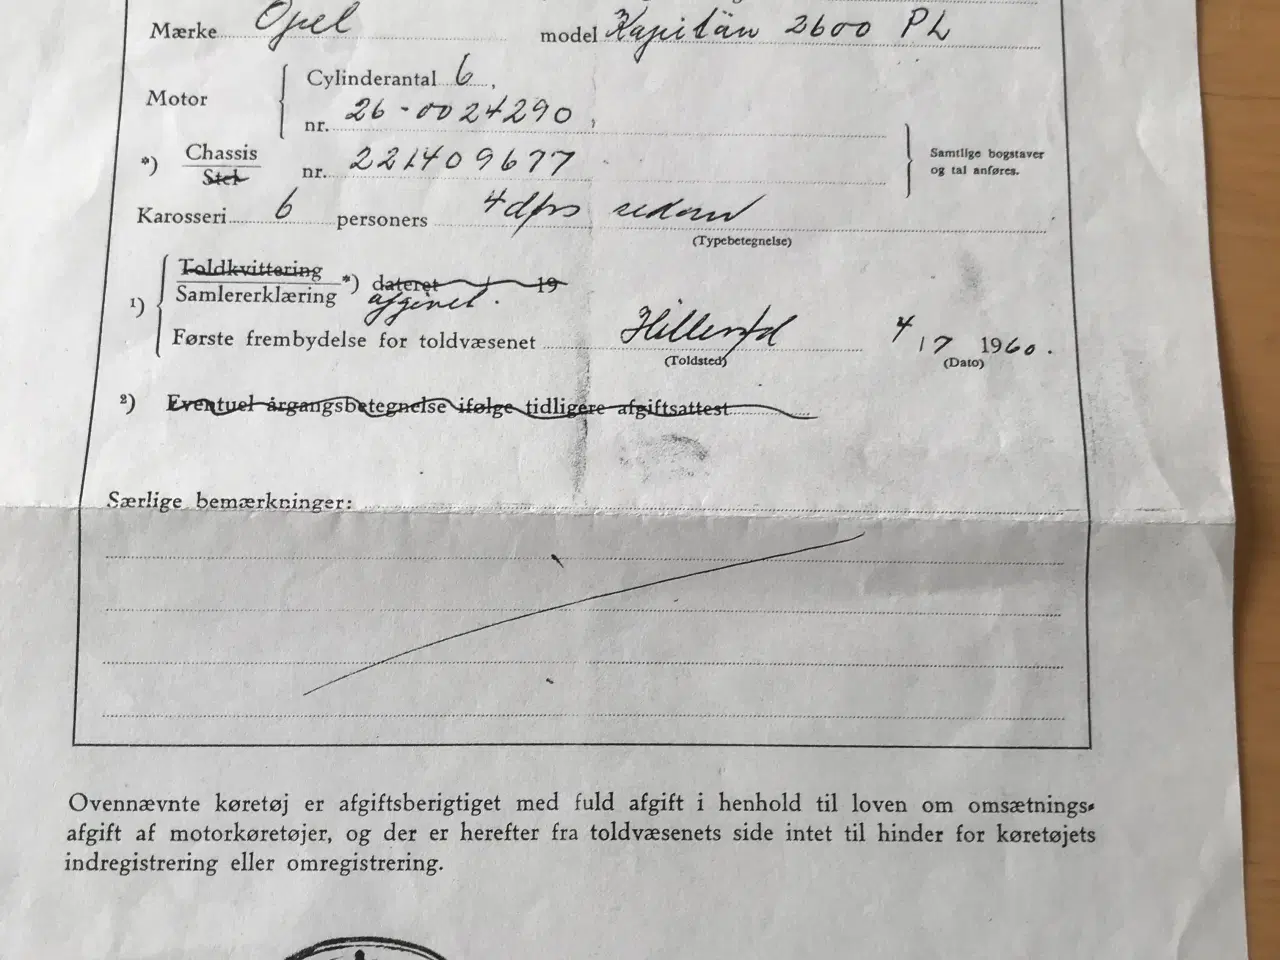 Mærke Opel model Kapitän 2600 PL
Motor
Cylinderantal 6,
nr. 26-0024290,
*) Chassis
Stel
nr. 221409677
Samtlige bogstaver
og tal anføres.
Karosseri 6 personers 4 dørs sedan
(Typebetegnelse)
1) Toldkvittering *) dateret / 19
Samlererklæring afgivet.
Første frembydelse for toldvæsenet Hillerød 4/7 1960.
(Toldsted) (Dato)
2) Eventuel årgangsbetegnelse ifølge tidligere afgiftsattest
Særlige bemærkninger:
Ovennævnte køretøj er afgiftsberigtiget med fuld afgift i henhold til loven om omsætnings-
afgift af motorkøretøjer, og der er herefter fra toldvæsenets side intet til hinder for køretøjets
indregistrering eller omregistrering.